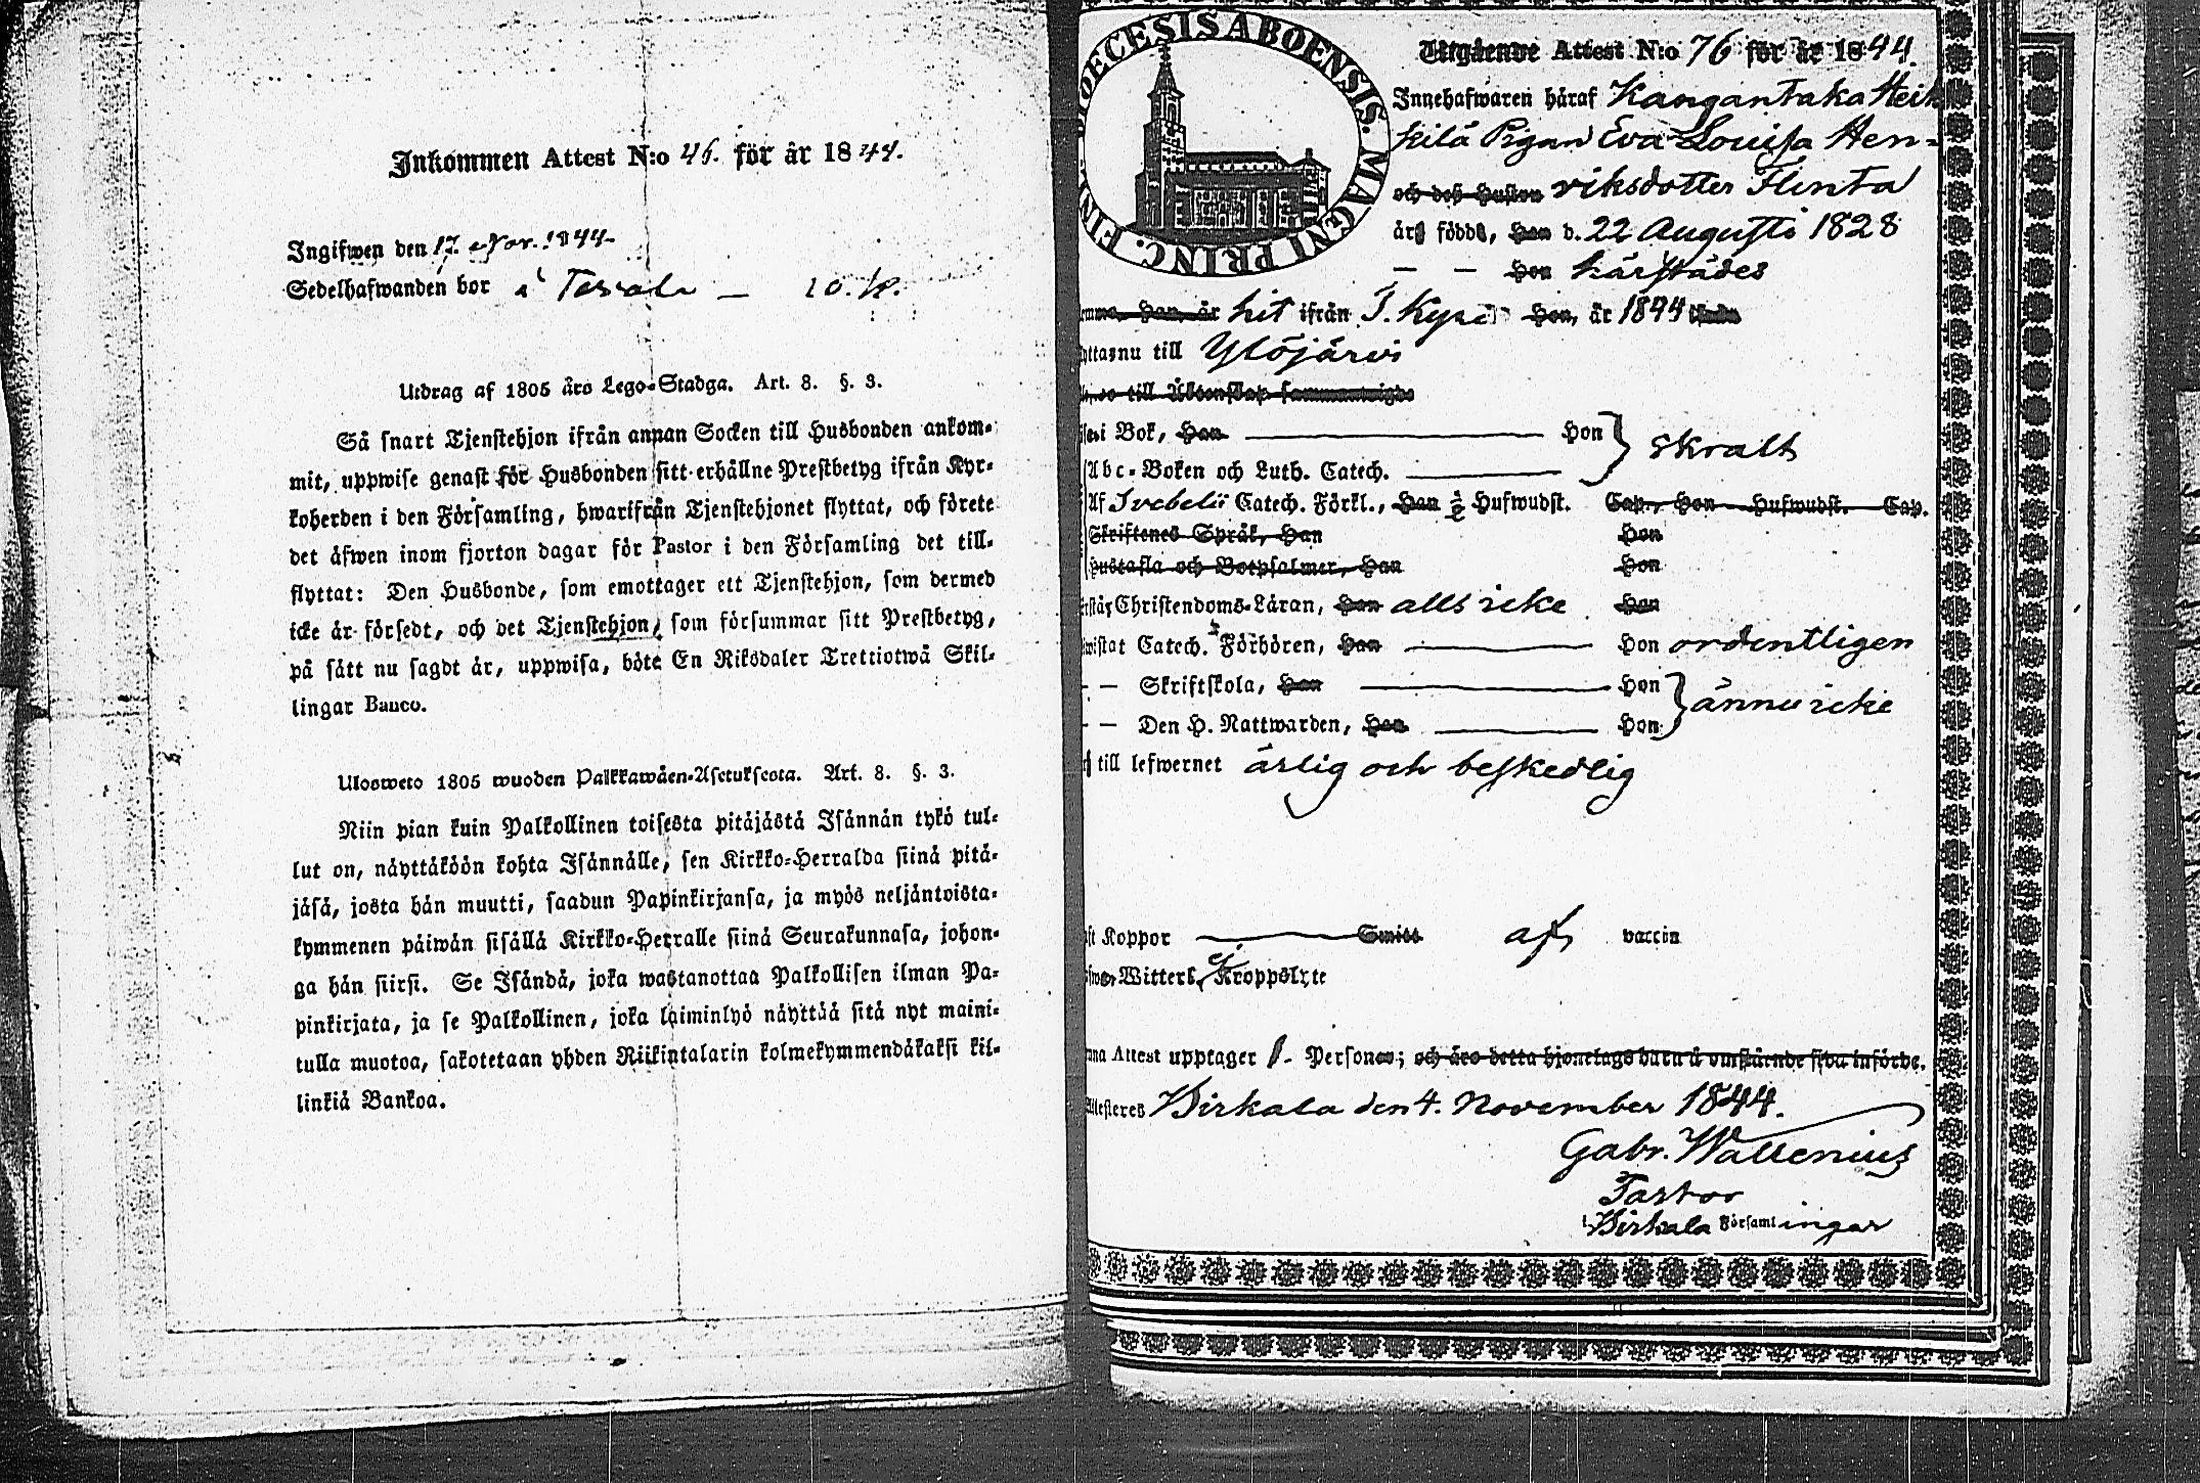 Inkommen Attest N:o 46. för år 1844.
Ingifwen den 17 Nov. 1844
Sedelhafwanden bor å
Utdrag af 1805 års Lego-Stadga. Art. 8. §. 3.
Så snart Tjenstehjon ifrån annan Socken till Husbonden ankom-
mit, uppwise genast för Husbonden sitt erhållne Prestbetyg ifrån Kyr-
koherden i den Församling, hwarifrån Tjenstehjonet flyttat, och förete
det äfwen inom fjorton dagar för Pastor i den Församling det till-
flyttat: Den Husbonde, som emottager ett Tjenstehjon, som dermed
icke är försedt, och det Tjenstehjon, som försummar sitt Prestbetyg,
på sätt nu sagdt är, uppwisa, böte En Riksdaler Trettiotwå Skil-
lingar Banco.
Ulosweto 1805 wuoden Palkkawäen-Asetuksesta. Art. 8. §. 3.
Niin pian kuin Palkollinen toisesta pitäjästä Isännän tykö tul-
lut on, näyttäköön kohta Isännälle, sen Kirkko-Herralda siinä pitä-
jäsä, josta hän muutti, saadun Papinkirjansa, ja myös neljäntoista-
kymmenen päiwän sisällä Kirkko-Herralle siinä Seurakunnasa, johon-
ga hän siirsi. Se Isändä, joka wastanottaa Palkollisen ilman Pa-
pinkirjata, ja se Palkollinen, joka laiminlyö näyttää sitä nyt maini-
tulla muotoa, sakotetaan yhden Riikintalarin kolmekymmendäkaksi kil-
linkiä Bankoa.
DIOECESIS ABOENSIS. MAGNI PRINC. FINL
Utgående Attest N:o 76 för år 1844.
Innehafwaren häraf Kangantaka Heik
kilä Pigan Eva Louisa Hen-
och dess Hustru riksdotter Flinta
äro födde, Han d. 22 Augusti 1828
— — Hon härstädes
Han, år hit ifrån Hon, år 1844
nu till Ylöjärvi
till Äktenskap sammanwigde
i Bok, Han — Hon } skralt
Abc-Boken och Luth. Catech. —
Af Svebelii Catech. Förkl., Han ½ Hufwudst. Cap., Hon — Hufwudst. — Cap.
Skriftenes Språk, Han Hon
Hustafla och Botpsalmer, Han Hon
Christendoms-Läran, Han alls icke Hon
Catech. Förhören, Han — Hon ordentligen
— — Skriftskola, Han — Hon } ännu icke
— — Den H. Nattwarden, Han — Hon
till lefwernet ärlig och beskedlig
Koppor — Smitt af vaccin
Witterl. ej Kroppslyte
Attest upptager 1. Persone; och äro detta hjonelags barn å omstående sida införde.
Attesteres Birkala den 4. November 1844.
Gabr. Wallenius
Pastor
i Birkala Församlingar